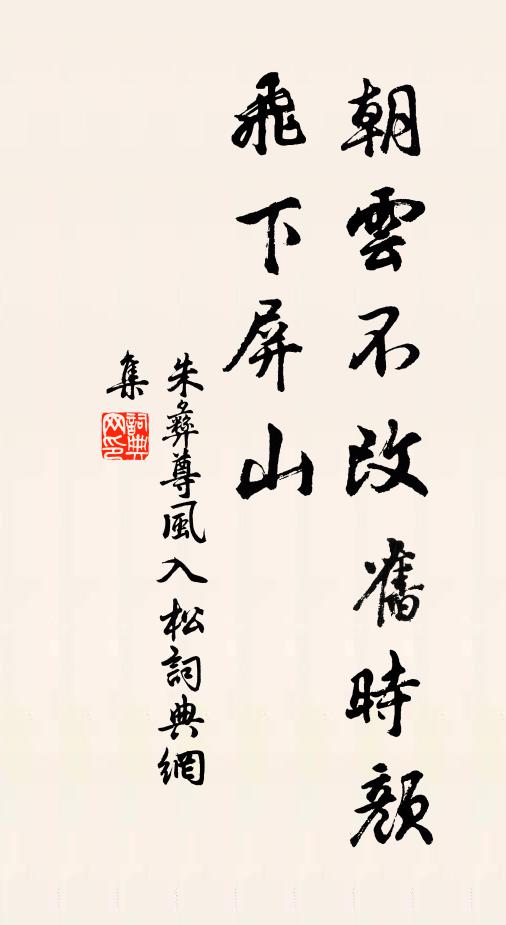 朝雲不改舊時顏
飛下屏山
朱彝尊風入松詞典網
集
詞典
网印